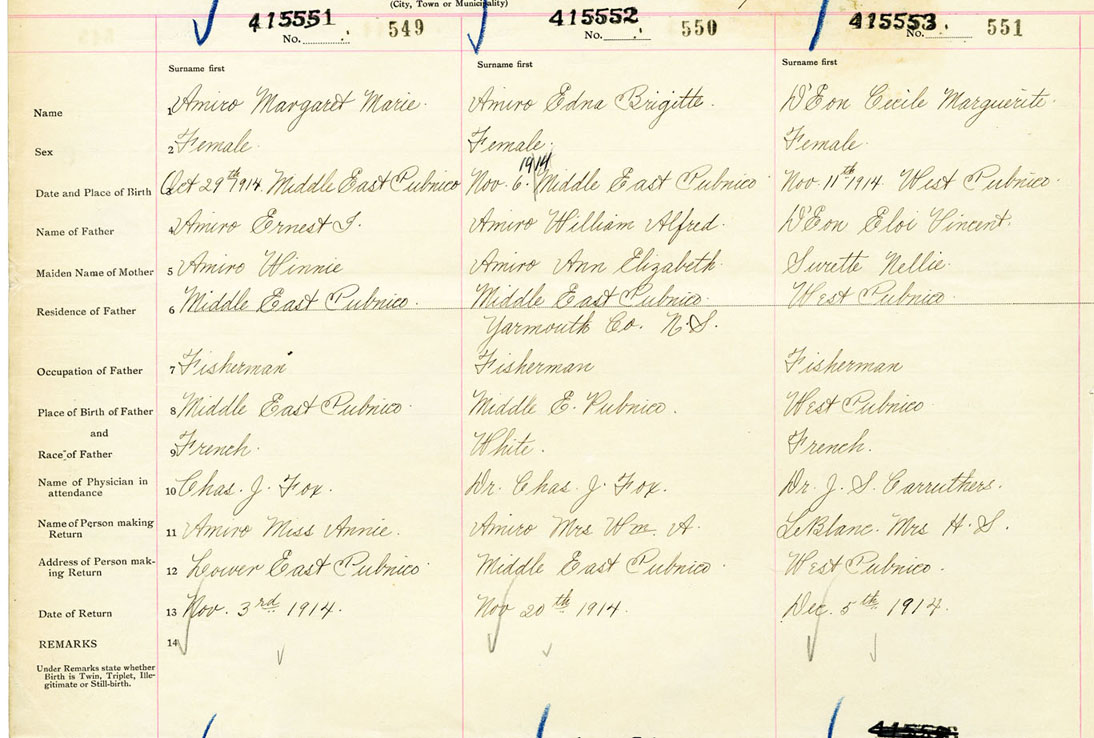 (City, Town or Municipality)
415551 415552 415553
No. 549 No. 550 No. 551
Surname first Surname first Surname first
Name 1 Amiro Margaret Marie. Amiro Edna Brigitte. D'Eon Cecile Marguerite.
Sex 2 Female. Female. Female.
1914
Date and Place of Birth 3 Oct 29th 1914. Middle East Pubnico Nov. 6. Middle East Pubnico Nov. 11th 1914. West Pubnico.
Name of Father 4 Amiro Ernest S. Amiro William Alfred. D'Eon Eloi Vincent.
Maiden Name of Mother 5 Amiro Winnie Amiro Ann Elizabeth. Surette Nellie.
Residence of Father 6 Middle East Pubnico. Middle East Pubnico. West Pubnico.
Yarmouth Co. N.S.
Occupation of Father 7 Fisherman Fisherman Fisherman
Place of Birth of Father 8 Middle East Pubnico. Middle E. Pubnico. West Pubnico.
and
Race of Father 9 French. White. French.
Name of Physician in
attendance 10 Chas. J. Fox. Dr. Chas. J. Fox. Dr. J. S. Carruthers.
Name of Person making
Return 11 Amiro Miss Annie. Amiro Mrs Wm. A. LeBlanc. Mrs H. S.
Address of Person mak-
ing Return 12 Lower East Pubnico. Middle East Pubnico. West Pubnico.
Date of Return 13 Nov. 3rd 1914. Nov 20th 1914. Dec. 5th 1914.
REMARKS 14
Under Remarks state whether
Birth is Twin, Triplet, Ille-
gitimate or Still-birth.